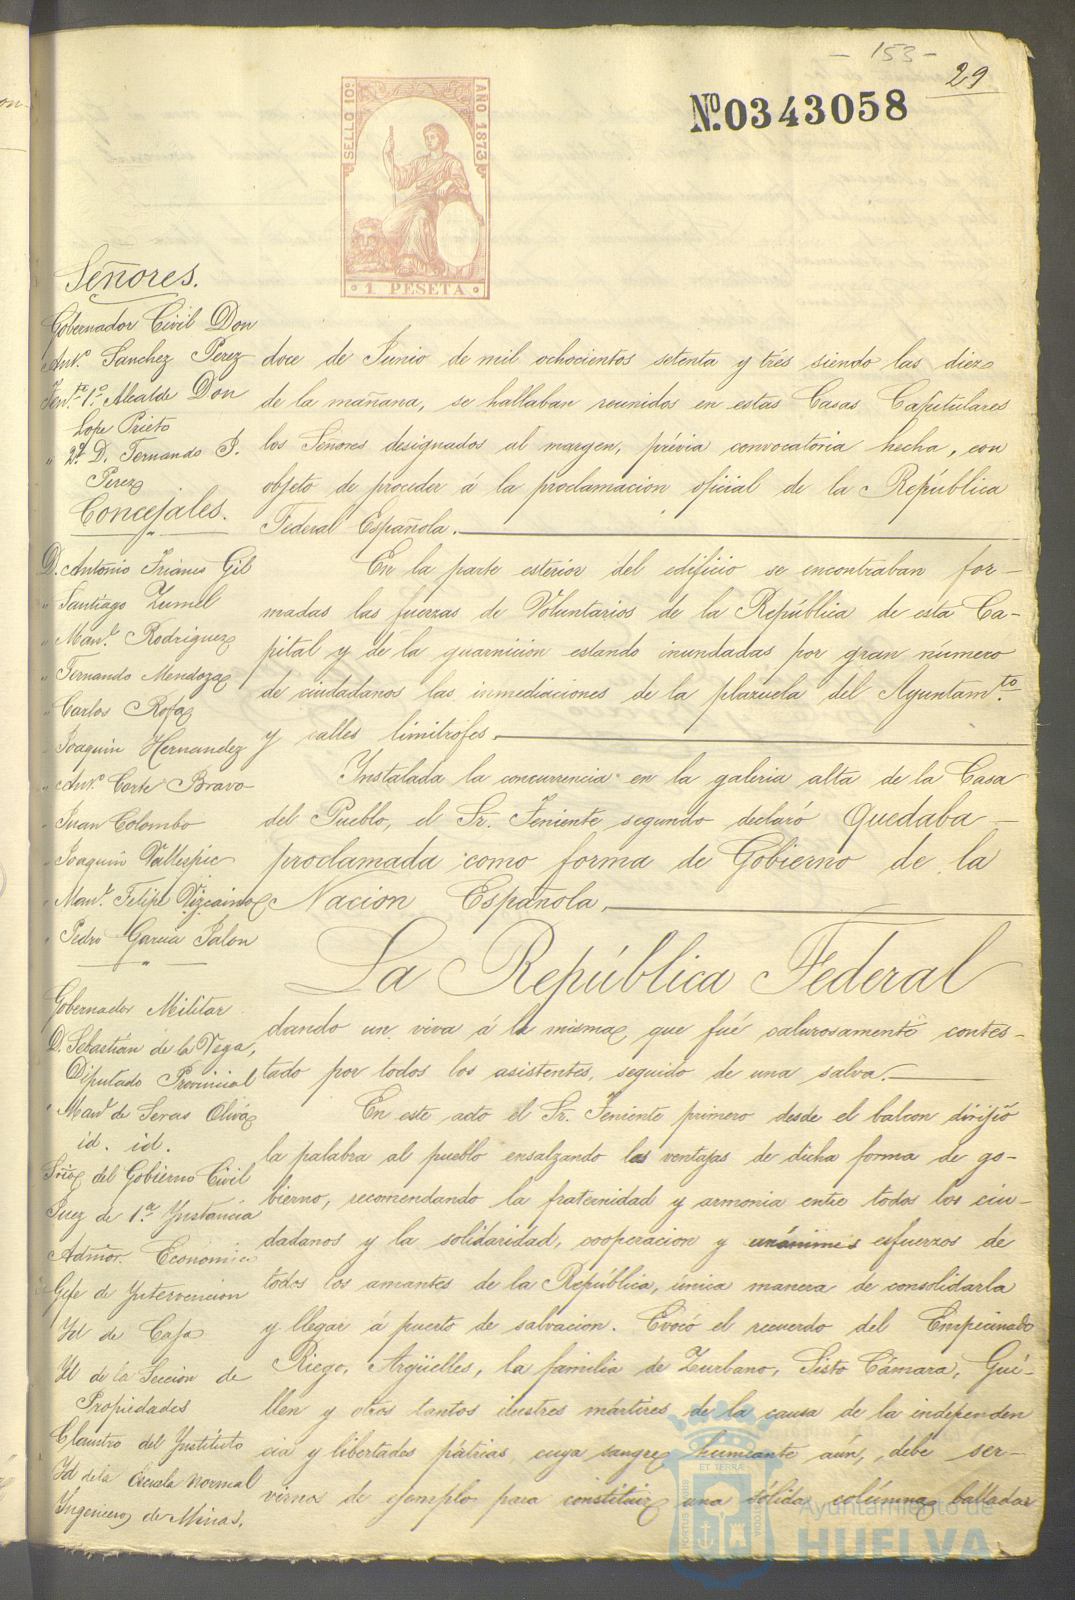 - 153 -
29
Nº 0343058
SELLO 10º
AÑO 1873
1 PESETA
Señores.
Gobernador Civil Don
Antº Sanchez Perez
Tente 1º Alcalde Don
Lope Prieto
" 2º D. Fernando J.
Perez
Concejales.
D. Antonio Trianes Gil
" Santiago Zumel
" Manl Rodriguez
" Fernando Mendoza
" Carlos Rofa
" Joaquin Hernandez
" Antº Corte Bravo
" Juan Colombo
" Joaquin Vallespic
" Manl Felipe Vizcaino
" Pedro Garcia Jalon
Gobernador Militar
D. Sebastián de la Vega,
Diputado Provincial
" Manl de Seras Oliva
id. id.
Srio del Gobierno Civil
Juez de 1ª Ynstancia
Admor. Economico
Gefe de Yntervencion
Yd de Caja
Yd de la Seccion de
Propiedades
Claustro del Ynstituto
Yd de la escuela normal
Yngeniero de Minas.
doce de Junio de mil ochocientos setenta y trés siendo las diez
de la mañana, se hallaban reunidos en estas Casas Capitulares
los Señores designados al margen, prévia convocatoria hecha, con
objeto de proceder á la proclamacion oficial de la República
Federal Española.
En la parte esterior del edificio se encontraban for-
madas las fuerzas de Voluntarios de la República de esta Ca-
pital y de la guarnicion estando inundadas por gran número
de ciudadanos las inmediaciones de la plazuela del Ayuntamto
y calles limitrofes.
Instalada la concurrencia en la galeria alta de la Casa
del Pueblo, el Sr. Teniente segundo declaró quedaba
proclamada como forma de Gobierno de la
Nacion Española,
La República Federal
dando un viva á la misma que fué calurosamente contes-
tado por todos los asistentes, seguido de una salva.
En este acto el Sr. Teniente primero desde el balcon dirijió
la palabra al pueblo ensalzando las ventajas de dicha forma de go-
bierno, recomendando la fraternidad y armonia entre todos los ciu-
dadanos y la solidaridad, cooperacion y unánimes esfuerzos de
todos los amantes de la República, única manera de consolidarla
y llegar á puerto de salvacion. Evocó el recuerdo del Empecinado
Riego, Argüelles, la familia de Zurbano, Sisto Cámara, Gui-
llen y otros tantos ilustres mártires de la causa de la independen
cia y libertades pátrias cuya sangre humeante aún, debe ser-
virnos de ejemplo para constituir una sólida colúmna balladar
Ayuntamiento de
HUELVA